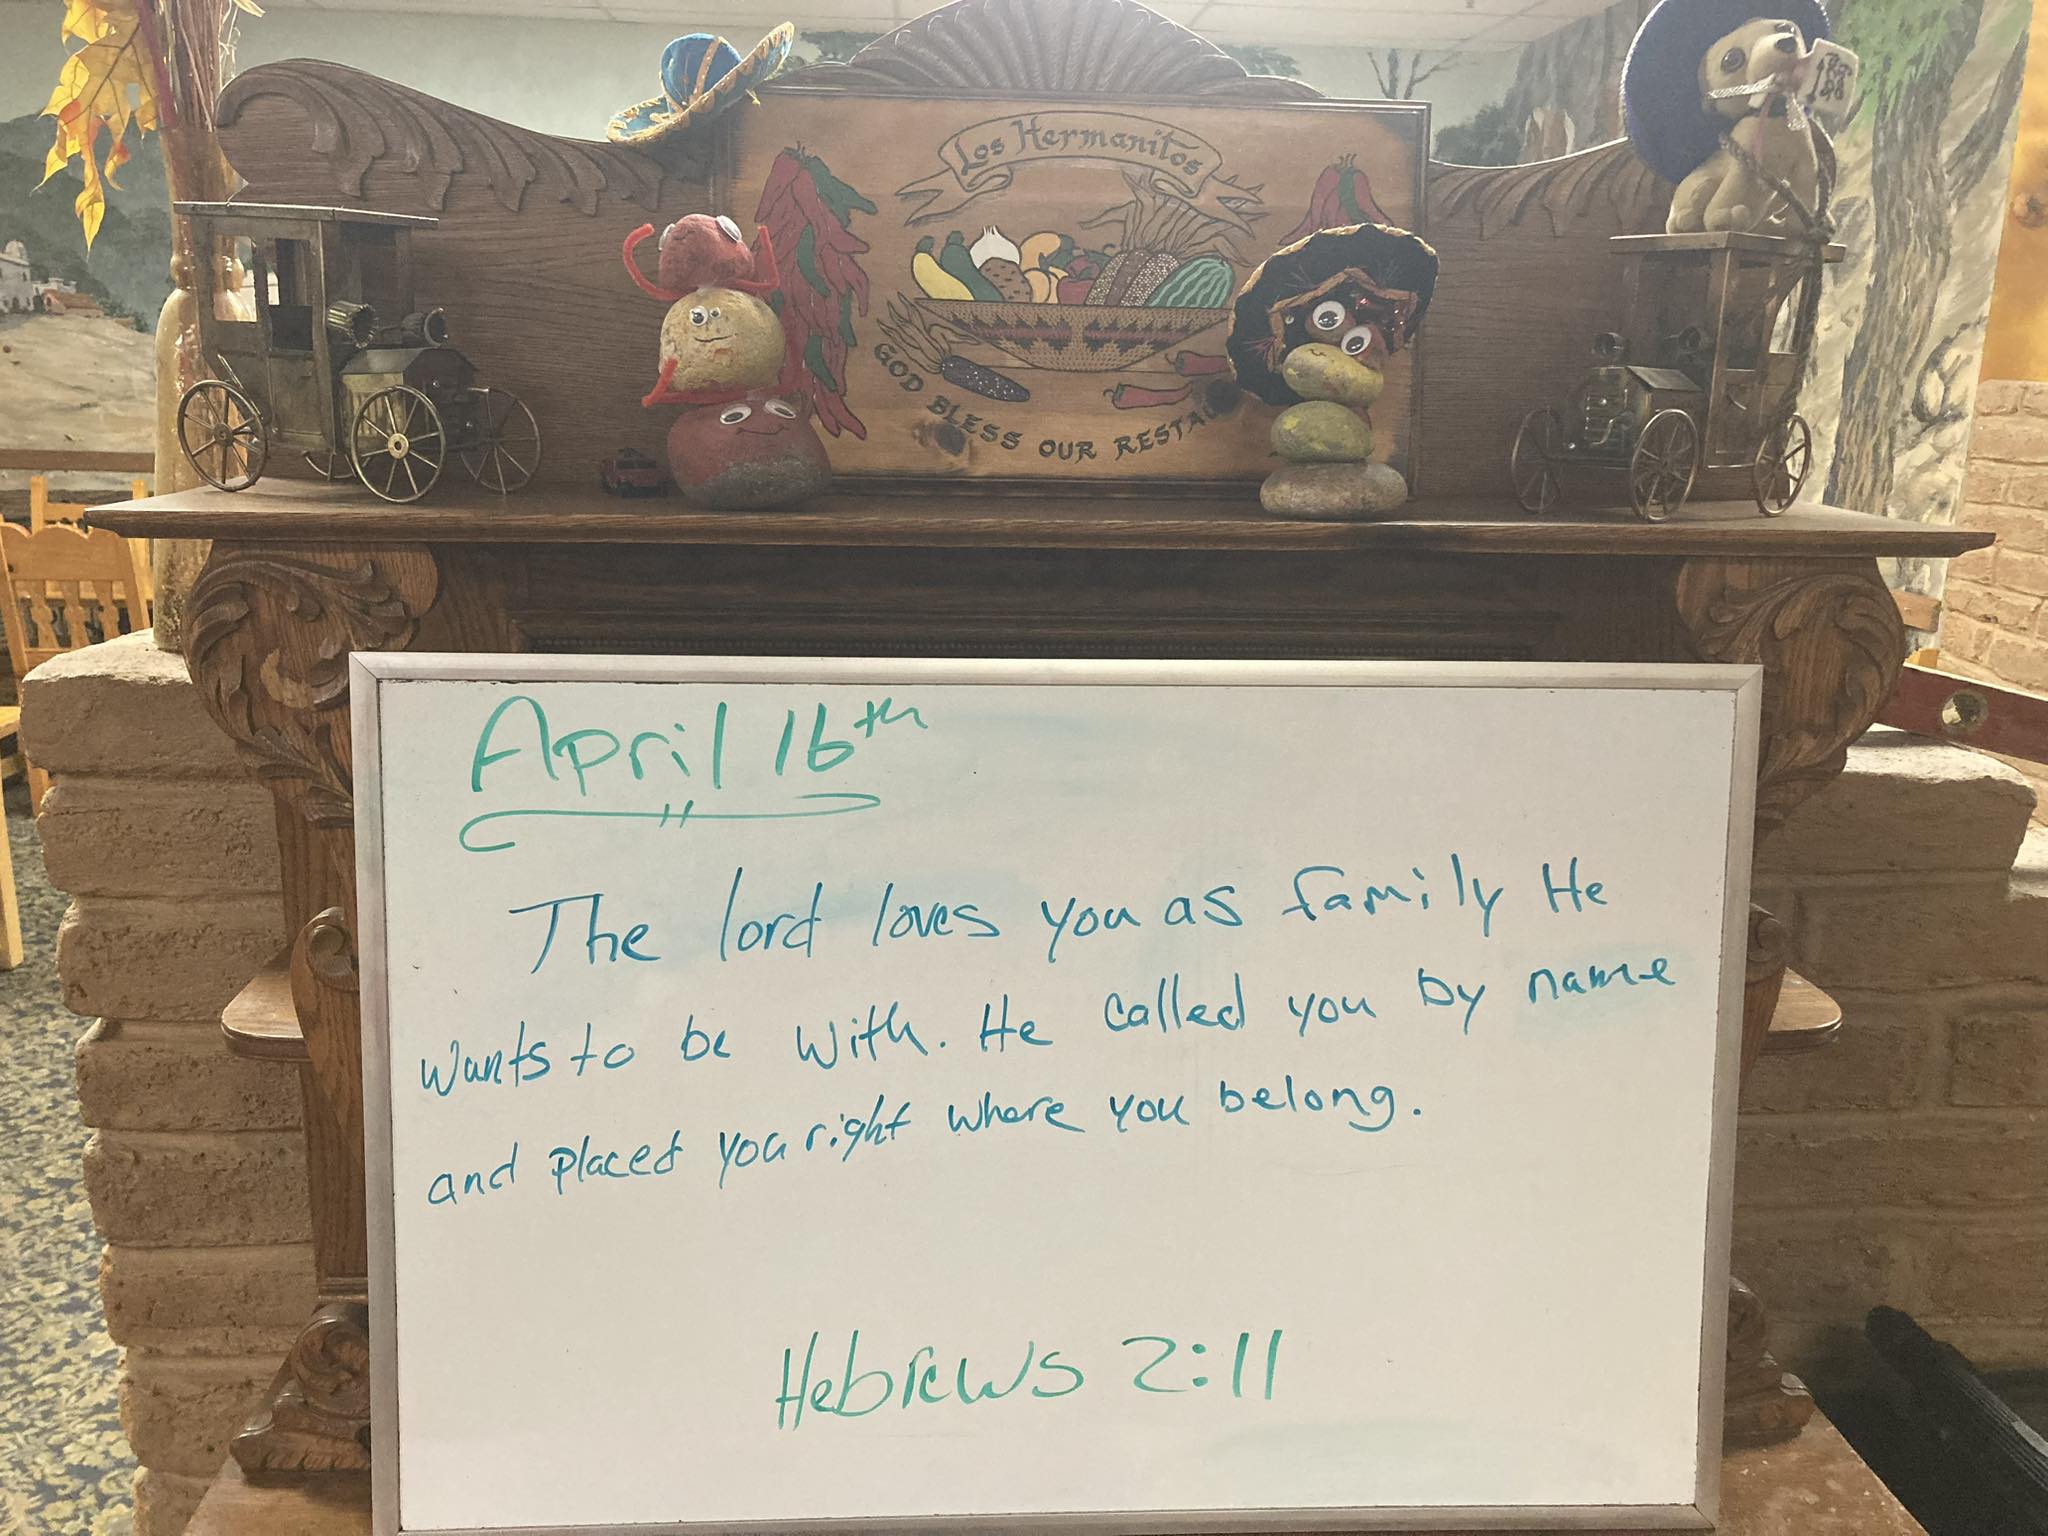 Los Hermanitos
GOD BLESS OUR RESTAU
April 16th
The lord loves you as family He
wants to be with. He called you by name
and placed you right where you belong.
Hebrews 2:11